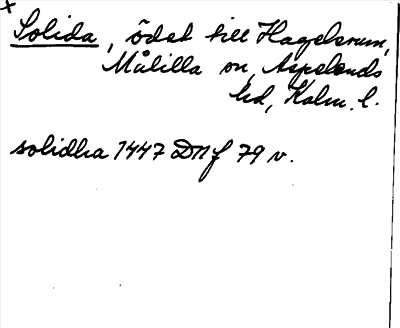 x
Solida, ödet till Hagelsrum,
Målilla sn, Aspelands
hd, Kalm. l.
solidha 1447 DN f 79 v.